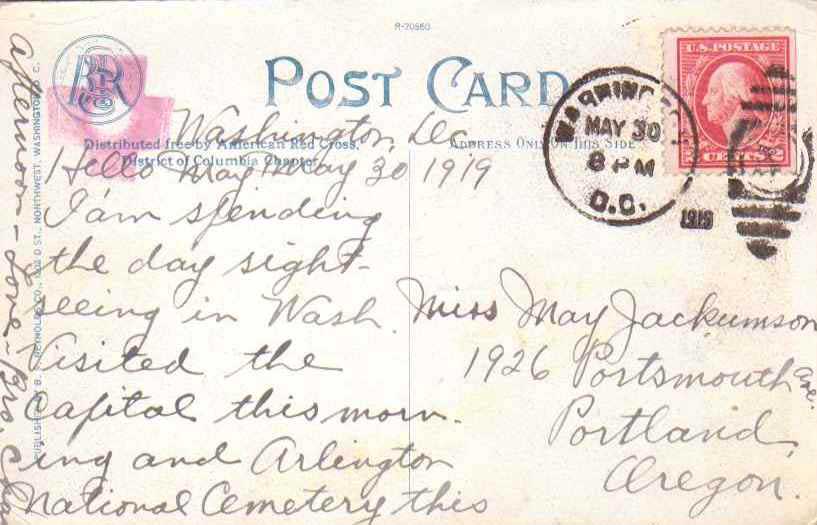 R-70860
POST CARD
Distributed free by American Red Cross.
District of Columbia Chapter.
ADDRESS ONLY ON THIS SIDE
U.S. POSTAGE
CENTS
WASHINGTON
MAY 30
8 PM
D.C.
1919
Washington, Dc
Hello May May 30 1919
I'am spending
the day sight-
seeing in Wash.
Visited the
Capital this morn-
ing and Arlington
National Cemetery this
afternoon - Love - Bro.
Miss May Jackumson
1926 Portsmouth ave.
Portland,
Oregon.
PUBLISHED BY B. REYNOLDS CO., D ST., NORTHWEST, WASHINGTON, D. C.